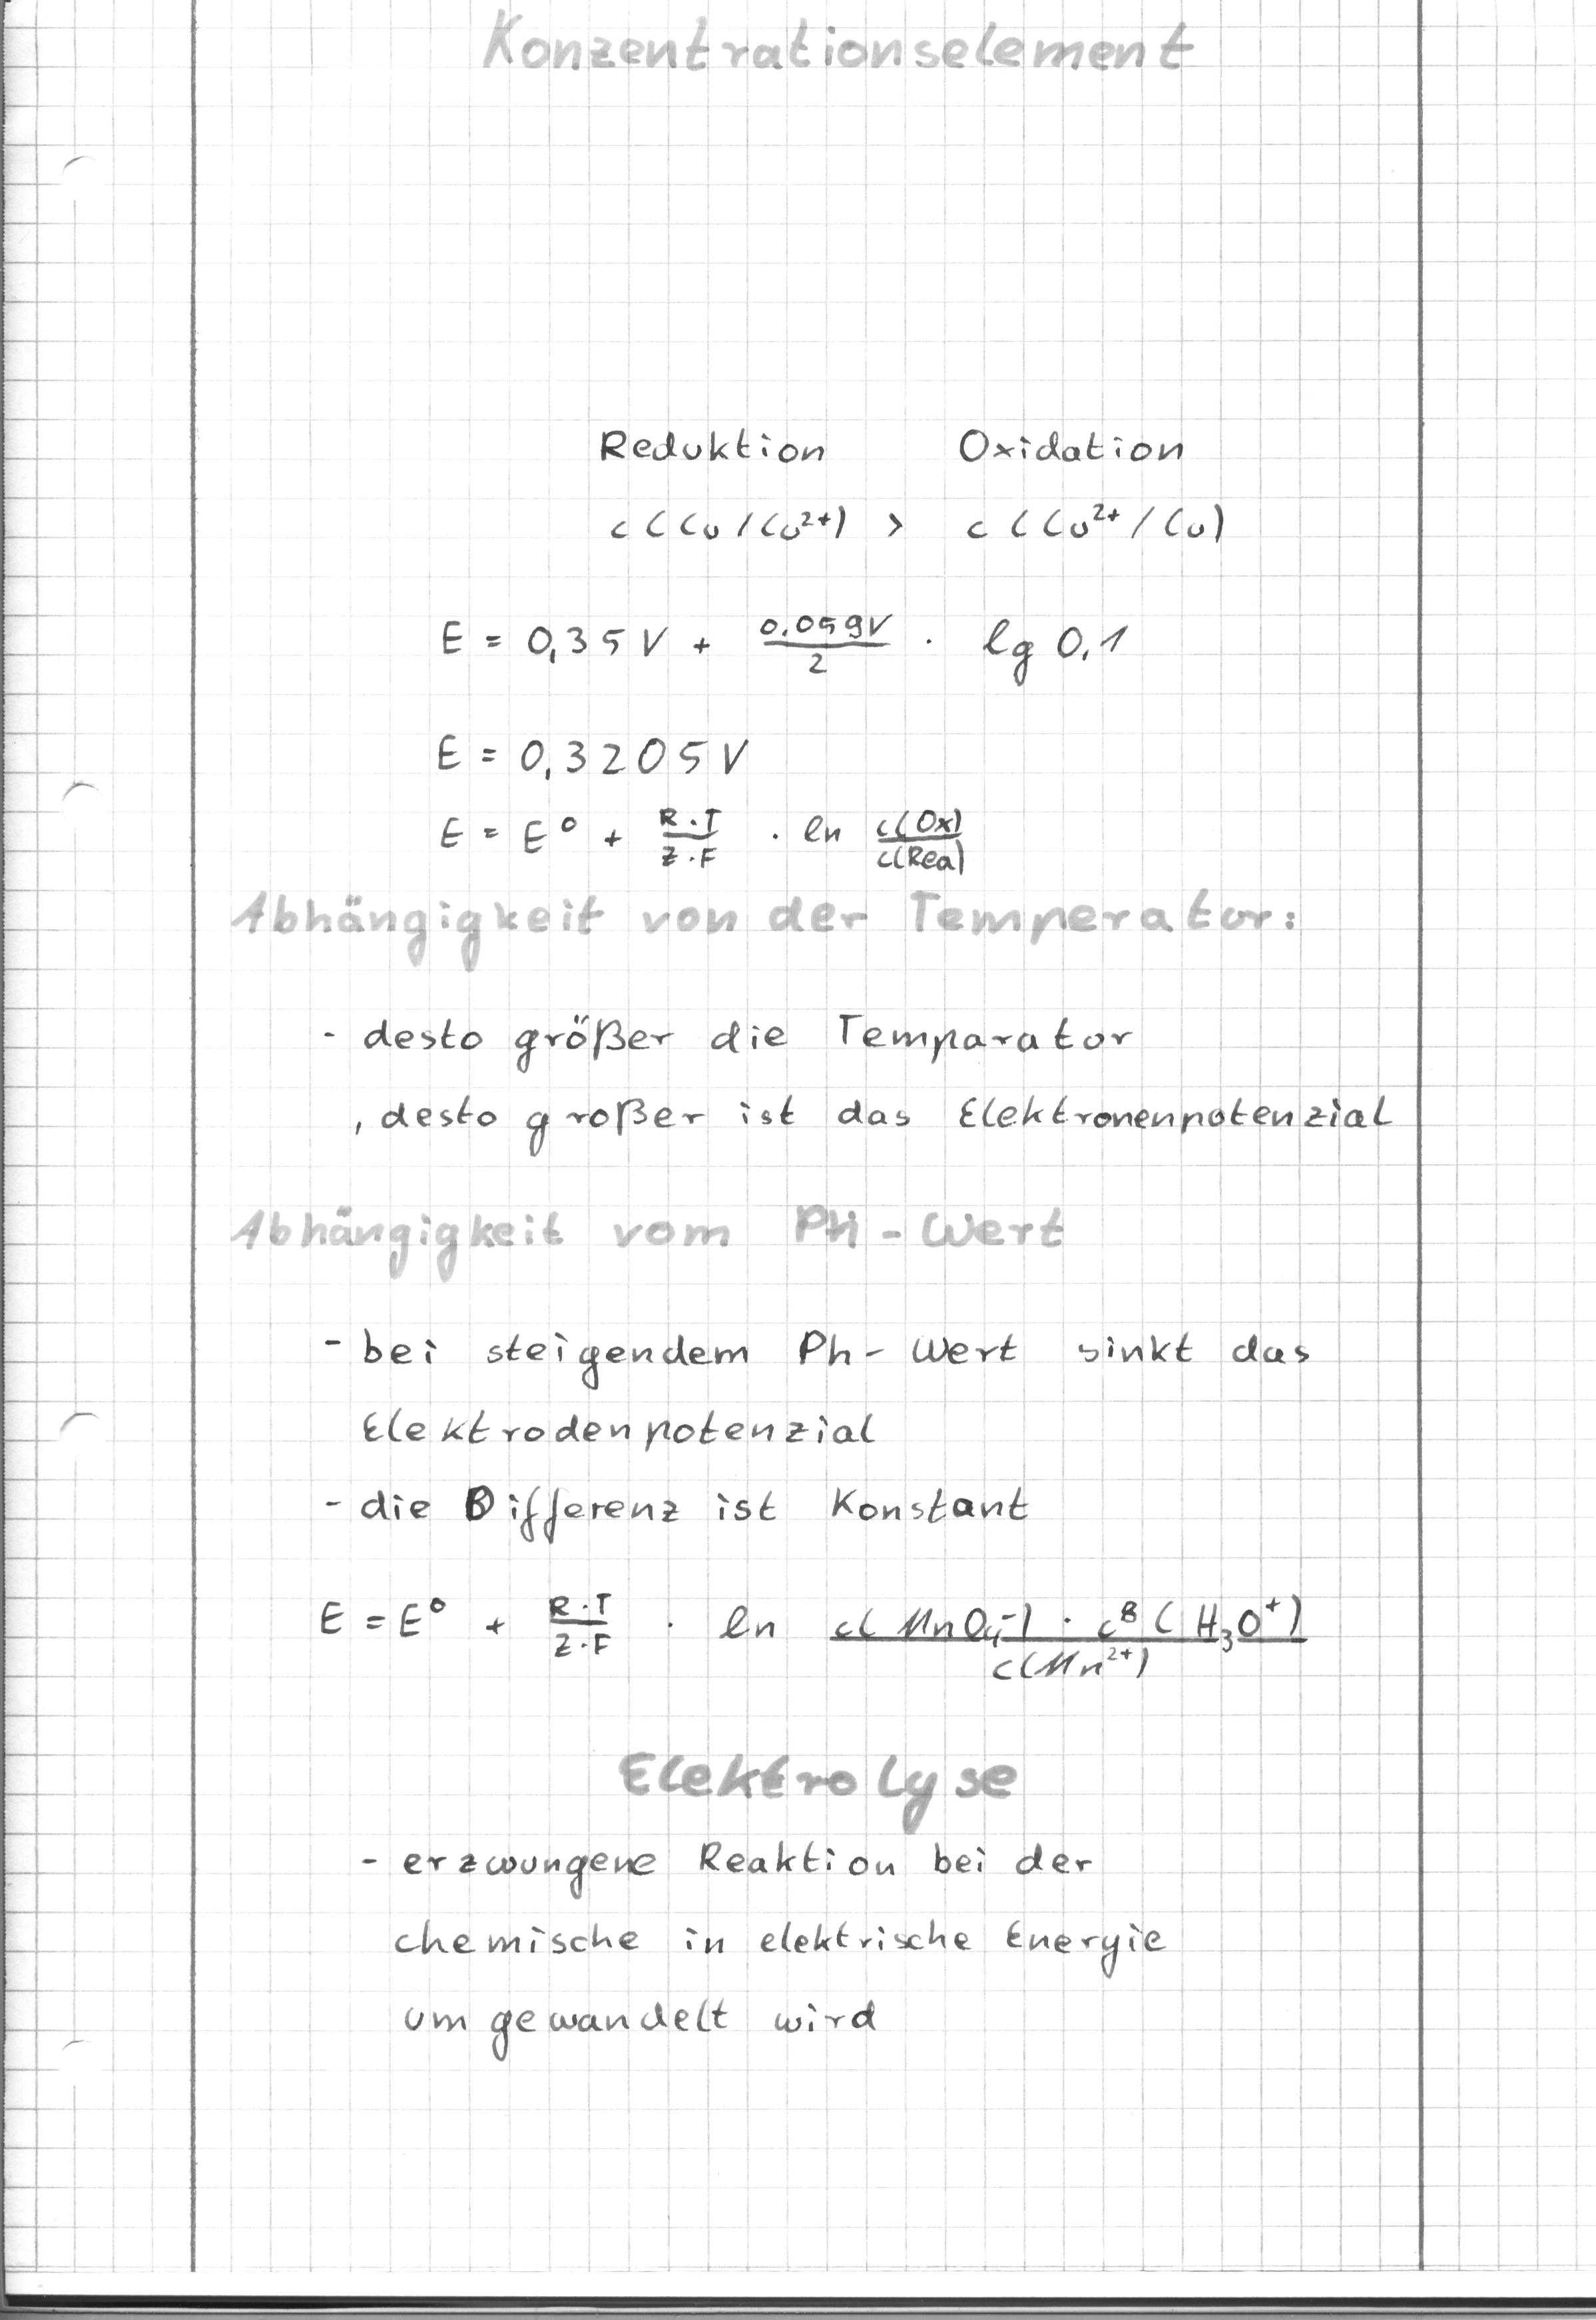 Konzentrationselement
Reduktion Oxidation
c(Cu/Cu²⁺) > c(Cu²⁺/Cu)
E = 0,35 V + 0.059V/2 · lg 0,1
E = 0,3205 V
E = E⁰ + R·T/z·F · ln c(Ox)/c(Red)
Abhängigkeit von der Temperatur:
- desto größer die Temparatur
, desto großer ist das Elektronenpotenzial
Abhängigkeit vom PH-Wert
- bei steigendem Ph-Wert sinkt das
Elektrodenpotenzial
- die Differenz ist Konstant
E = E⁰ + R·T/z·F · ln c(MnO₄⁻) · c⁸(H₃O⁺)/c(Mn²⁺)
Elektrolyse
- erzwungene Reaktion bei der
chemische in elektrische Energie
umgewandelt wird